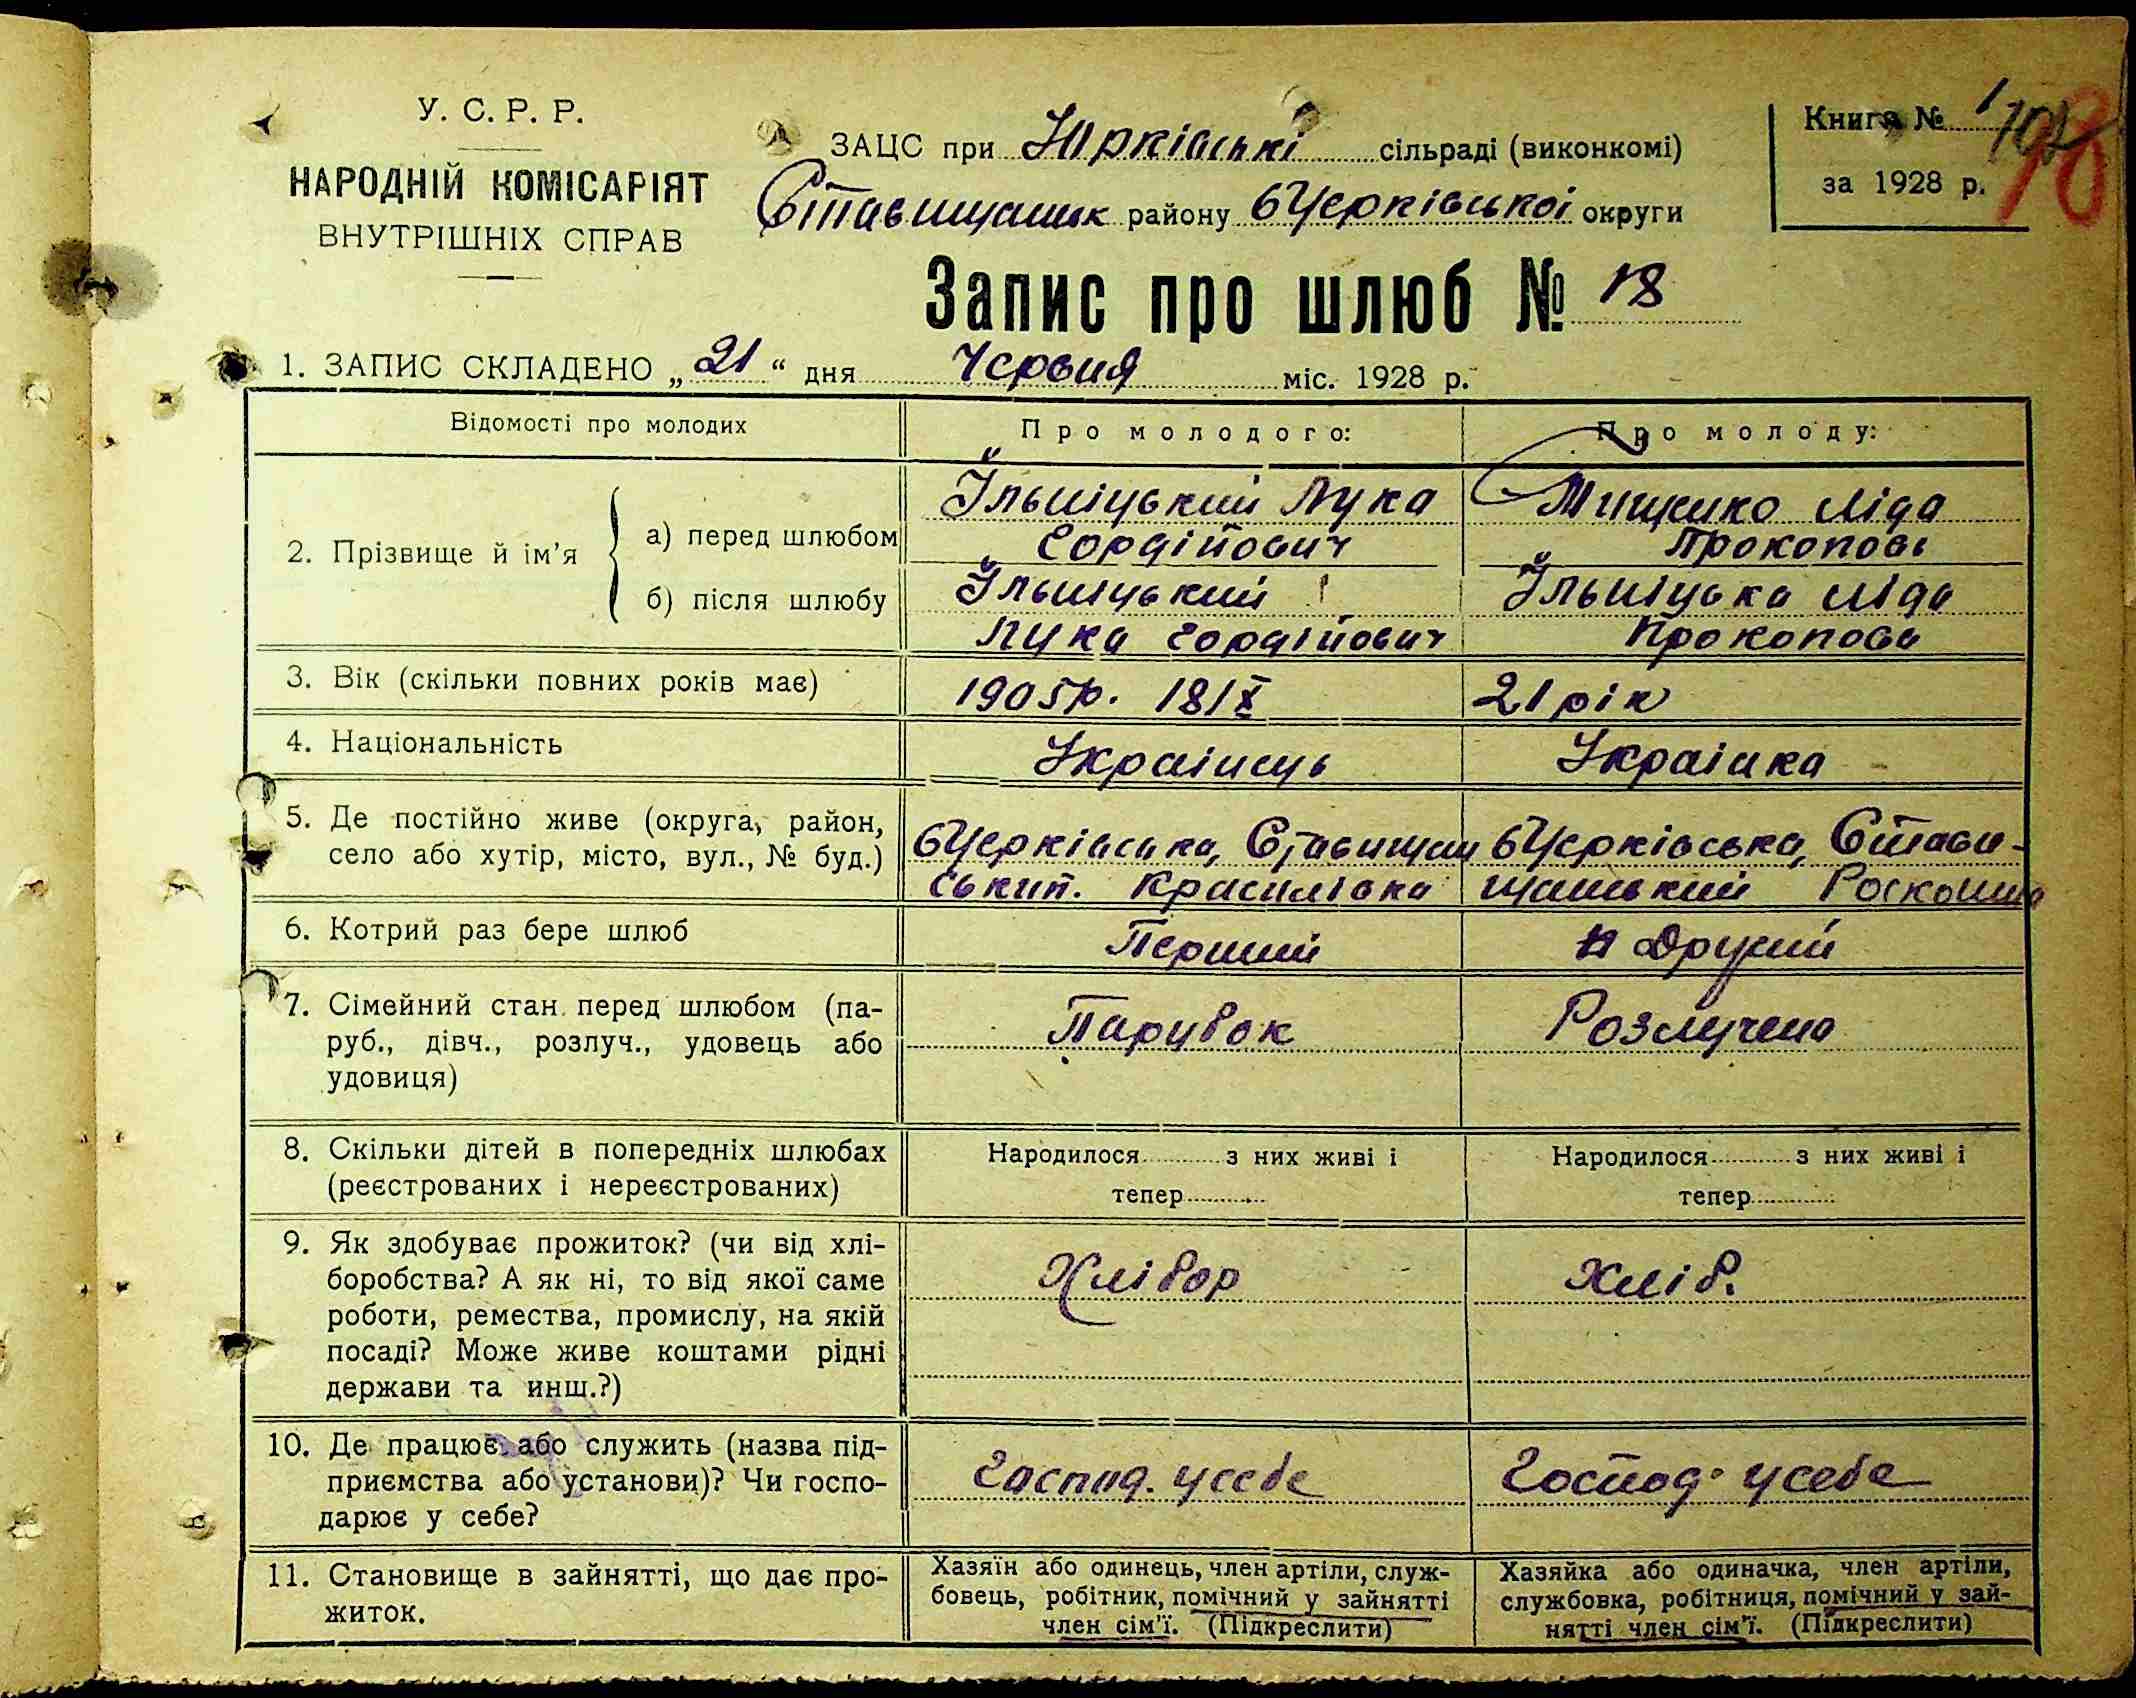 У. С. Р. Р.
НАРОДНІЙ КОМІСАРІЯТ
ВНУТРІШНІХ СПРАВ
ЗАЦС при Юрківські сільраді (виконкомі)
Ставищанськ району бЧерківської округи
Книга № 1
за 1928 р.
Запис про шлюб № 18
1. ЗАПИС СКЛАДЕНО „21“ дня Червня міс. 1928 р.
Відомості про молодих
Про молодого:
Про молоду:
2. Прізвище й ім’я
а) перед шлюбом
Ільніцький Лука
Гордійович
Тищенко Ліда
Прокопові
б) після шлюбу
Ільніцький
Лука Гордійович
Ільніцька Ліда
Прокопова
3. Вік (скільки повних років має)
1905р. 18/X
21 рік
4. Національність
Українець
Українка
5. Де постійно живе (округа, район,
село або хутір, місто, вул., № буд.)
бЧерківська, Ставищан
ський. Красилівка
бЧерківська, Стави-
щанський Роскошна
6. Котрий раз бере шлюб
Перший
Другий
7. Сімейний стан перед шлюбом (па-
руб., дівч., розлуч., удовець або
удовиця)
Парубок
Розлучена
8. Скільки дітей в попередніх шлюбах
(реєстрованих і нереєстрованих)
Народилося з них живі і
тепер
Народилося з них живі і
тепер
9. Як здобуває прожиток? (чи від хлі-
боробства? А як ні, то від якої саме
роботи, ремества, промислу, на якій
посаді? Може живе коштами рідні
держави та инш.?)
Хлібор
Хліб.
10. Де працює або служить (назва під-
приємства або установи)? Чи госпо-
дарює у себе?
Господ. усебе
Господ. усебе
11. Становище в зайнятті, що дає про-
житок.
Хазяїн або одинець, член артіли, служ-
бовець, робітник, помічний у зайнятті
член сім’ї. (Підкреслити)
Хазяйка або одиначка, член артіли,
службовка, робітниця, помічний у зай-
нятті член сім’ї. (Підкреслити)